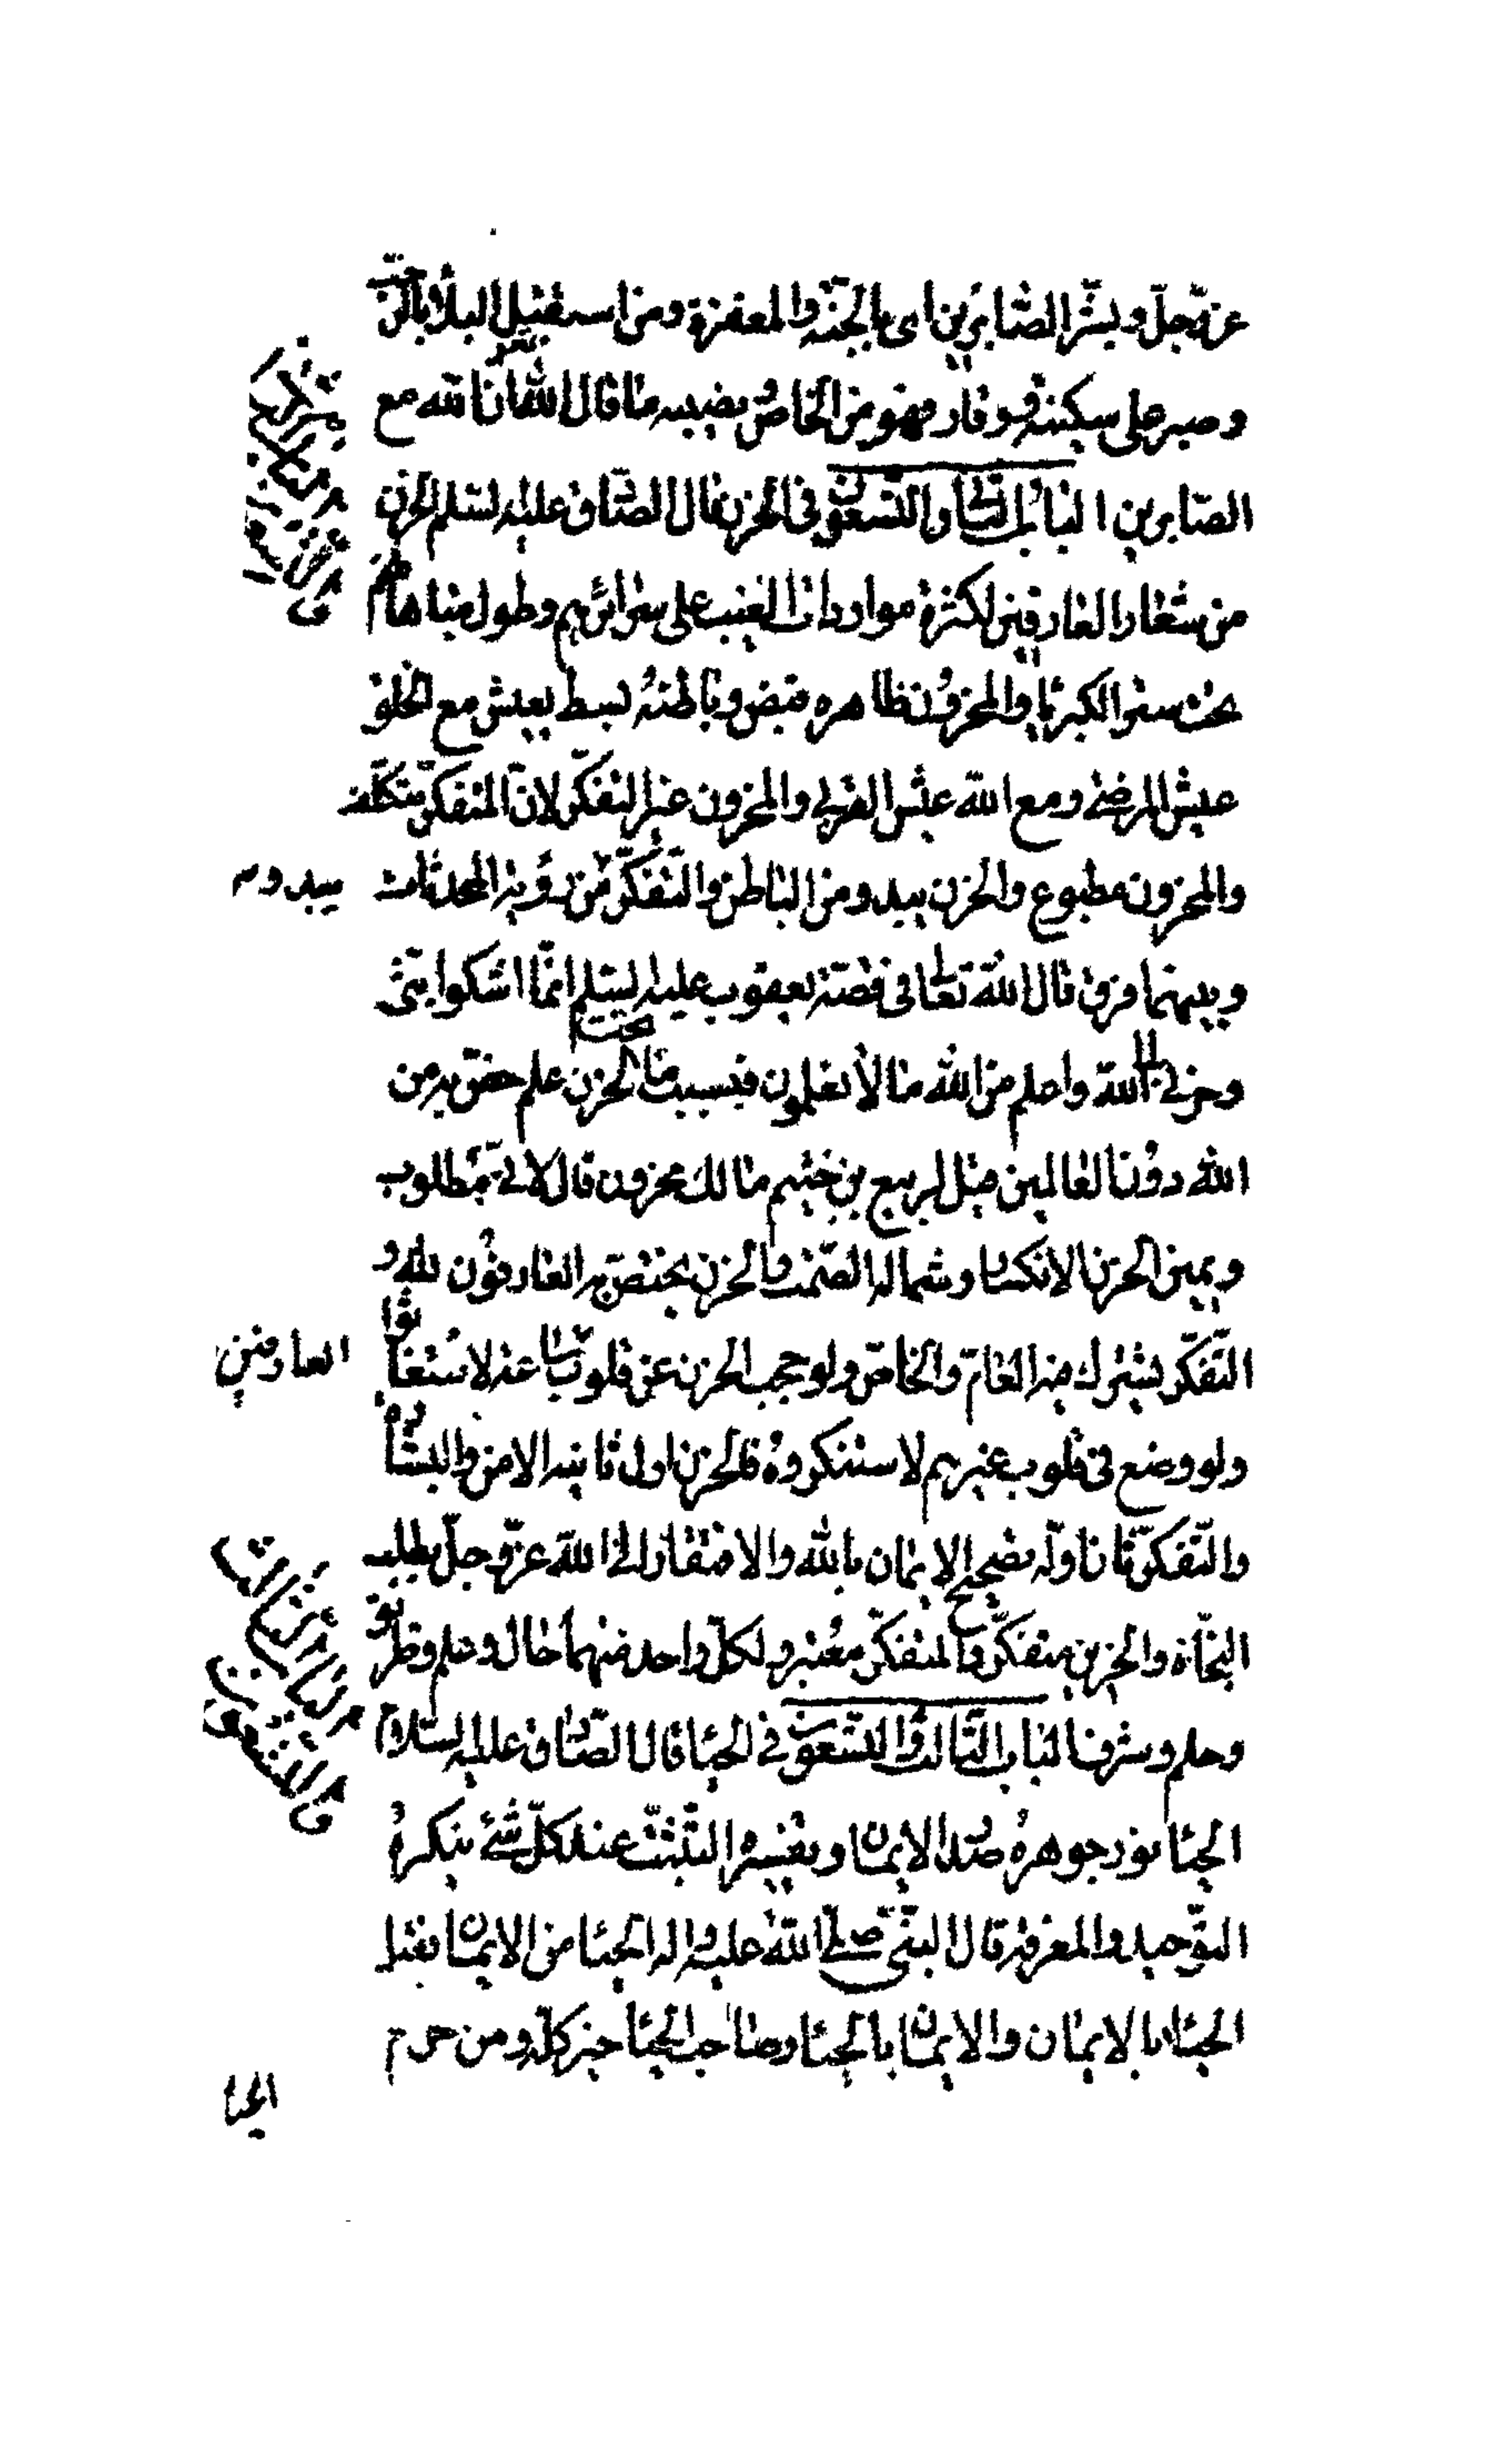 عز وجل وبشر الصابرين اى بالجنة والمغفرة ومن استقبل البلايا بالرحب
وصبر على سكينة ووقار فهو من الخاص ونصيبه ما قال الله ان الله مع
الصابرين الباب الثانى والتسعون فى الحزن قال الصادق عليه السلم الحزن
من شعار العارفين لكثرة مواردات الغيب على سرائرهم وطول مباهاتهم
تحت ستر الكبرياء والمحزون ظاهره قبض وباطنه بسط يعيش مع الخلق
عيش المرضى ومع الله عيش القربى والمحزون غير التفكر لان المتفكر متكلف
والمحزون مطبوع والحزن يبدو من الباطن والتفكر من رؤية المحدثات
يبدو
وبينهما فرق قال الله تعالى فى قصة يعقوب عليه السلم انما اشكوا بثى
وحزنى الى الله واعلم من الله ما لا تعلمون فبسبب ما تحت الحزن علم خص به من
الله دون العالمين قيل لربيع بن خثيم ما لك محزون قال لانى مطلوب
ويمين الحزن الانكسار وشماله الصمت والحزن يختص به العارفون لله و
التفكر يشترك فيه العام والخاص ولو حجب الحزن عن قلوب ساعة لاستغاثوا
العارفين
ولو وضع فى قلوب غيرهم لاستنكروه فالحزن اول ثانيه الامن والبشارة
والتفكر ثان اوله تصحيح الايمان بالله والافتقار الى الله عز وجل بطلب
النجاة والحزين متفكر والمتفكر معتبر ولكل واحد منهما حال وعلم وطريق
وحلم وشرف الباب الثالث والتسعون فى الحياء قال الصادق عليه السلام
الحياء نور جوهره صدر الايمان وتفسيره التثبت عند كل شئ ينكره
التوحيد والمعرفة قال النبى صلى الله عليه واله الحياء من الايمان فقيل
الحياء بالايمان والايمان بالحياء وصاحب الحياء خير كله ومن حرم
الحياء